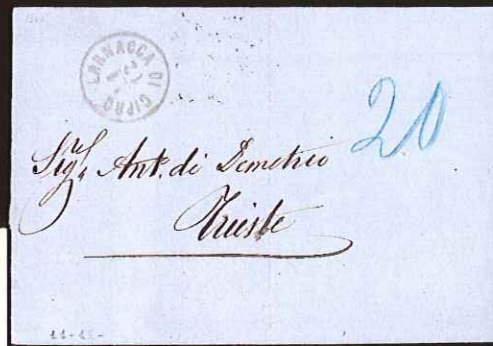 LARNACCA DI CIPRO
20
Sig.r Ant. di Demetrio
Trieste